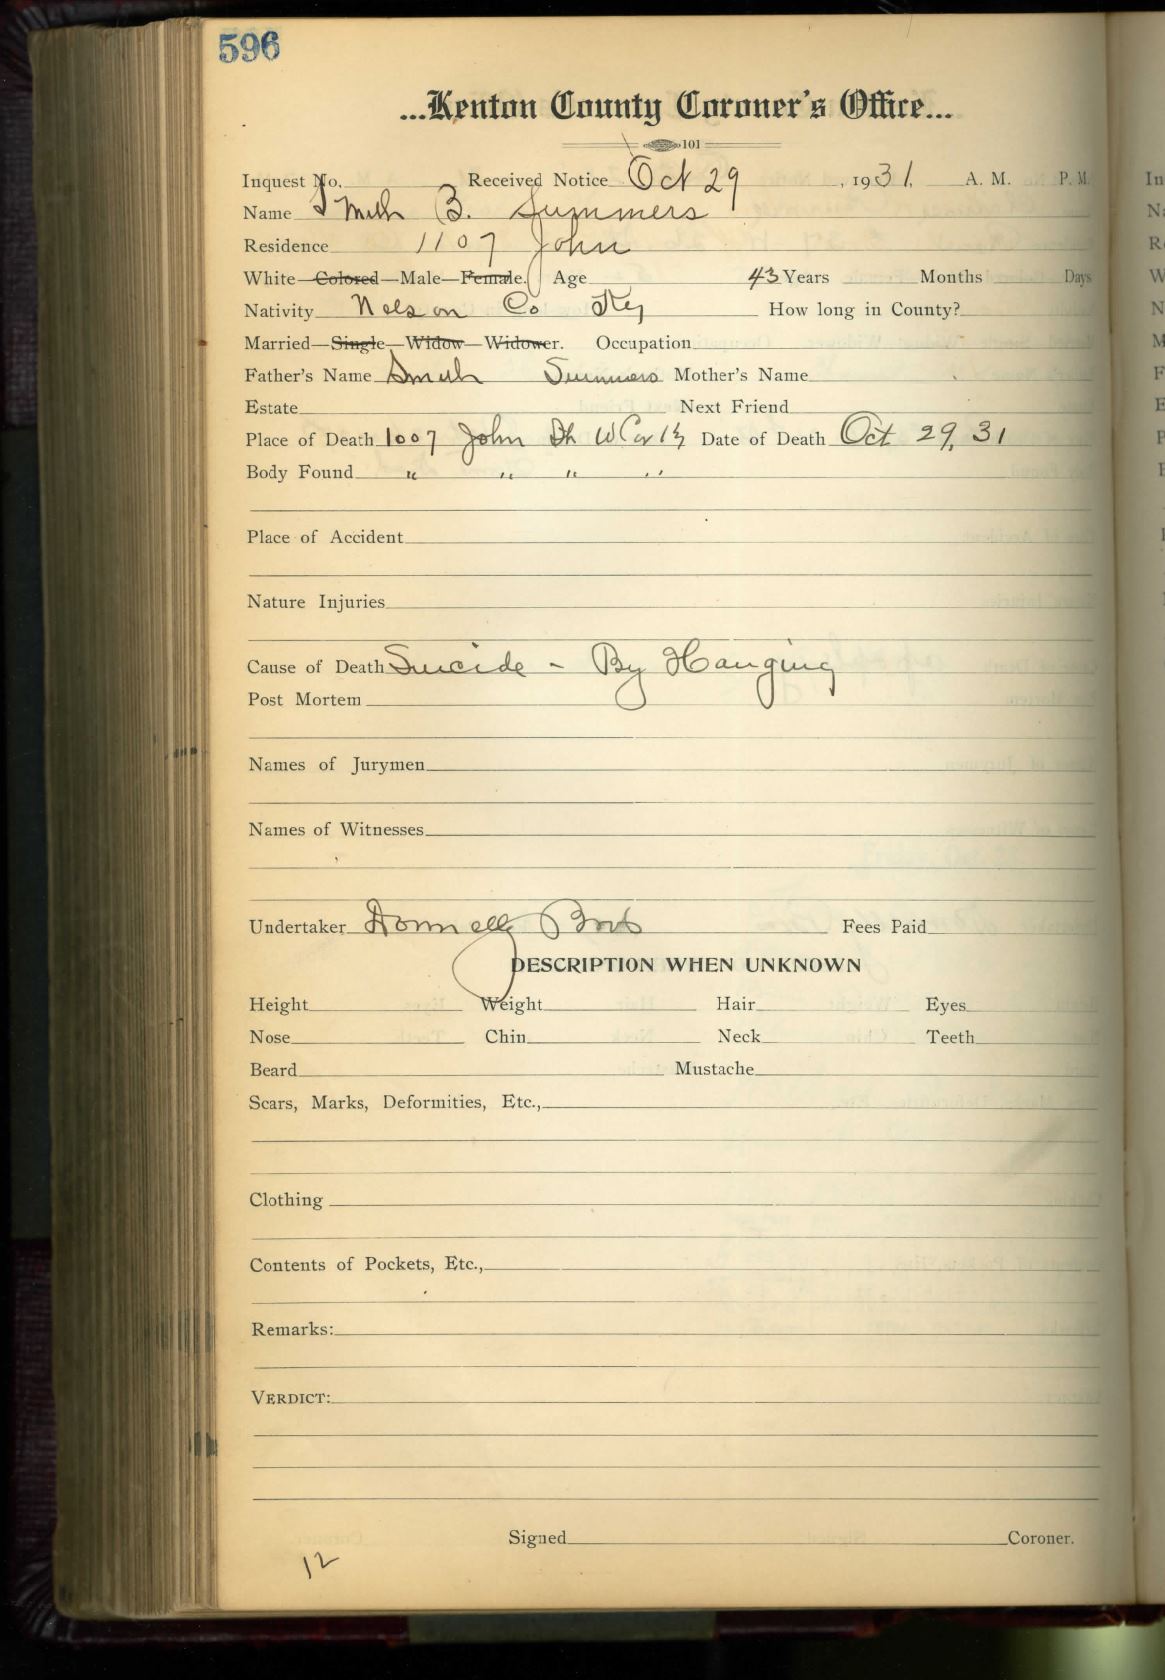 596
...Kenton County Coroner's Office...
101
Inquest No. Received Notice Oct 29, 1931, A. M. P. M.
Name Smith B. Summers
Residence 1107 John
White—Colored—Male—Female. Age 43 Years Months Days
Nativity Nelson Co Ky How long in County?
Married—Single—Widow—Widower. Occupation
Father's Name Smith Summers Mother's Name
Estate Next Friend
Place of Death 1007 John W Cov Ky Date of Death Oct 29, 31
Body Found " " " "
Place of Accident
Nature Injuries
Cause of Death Suicide - By Hanging
Post Mortem
Names of Jurymen
Names of Witnesses
Undertaker Donnelly Bros Fees Paid
DESCRIPTION WHEN UNKNOWN
Height Weight Hair Eyes
Nose Chin Neck Teeth
Beard Mustache
Scars, Marks, Deformities, Etc.,
Clothing
Contents of Pockets, Etc.,
Remarks:
VERDICT:
Signed Coroner.
12